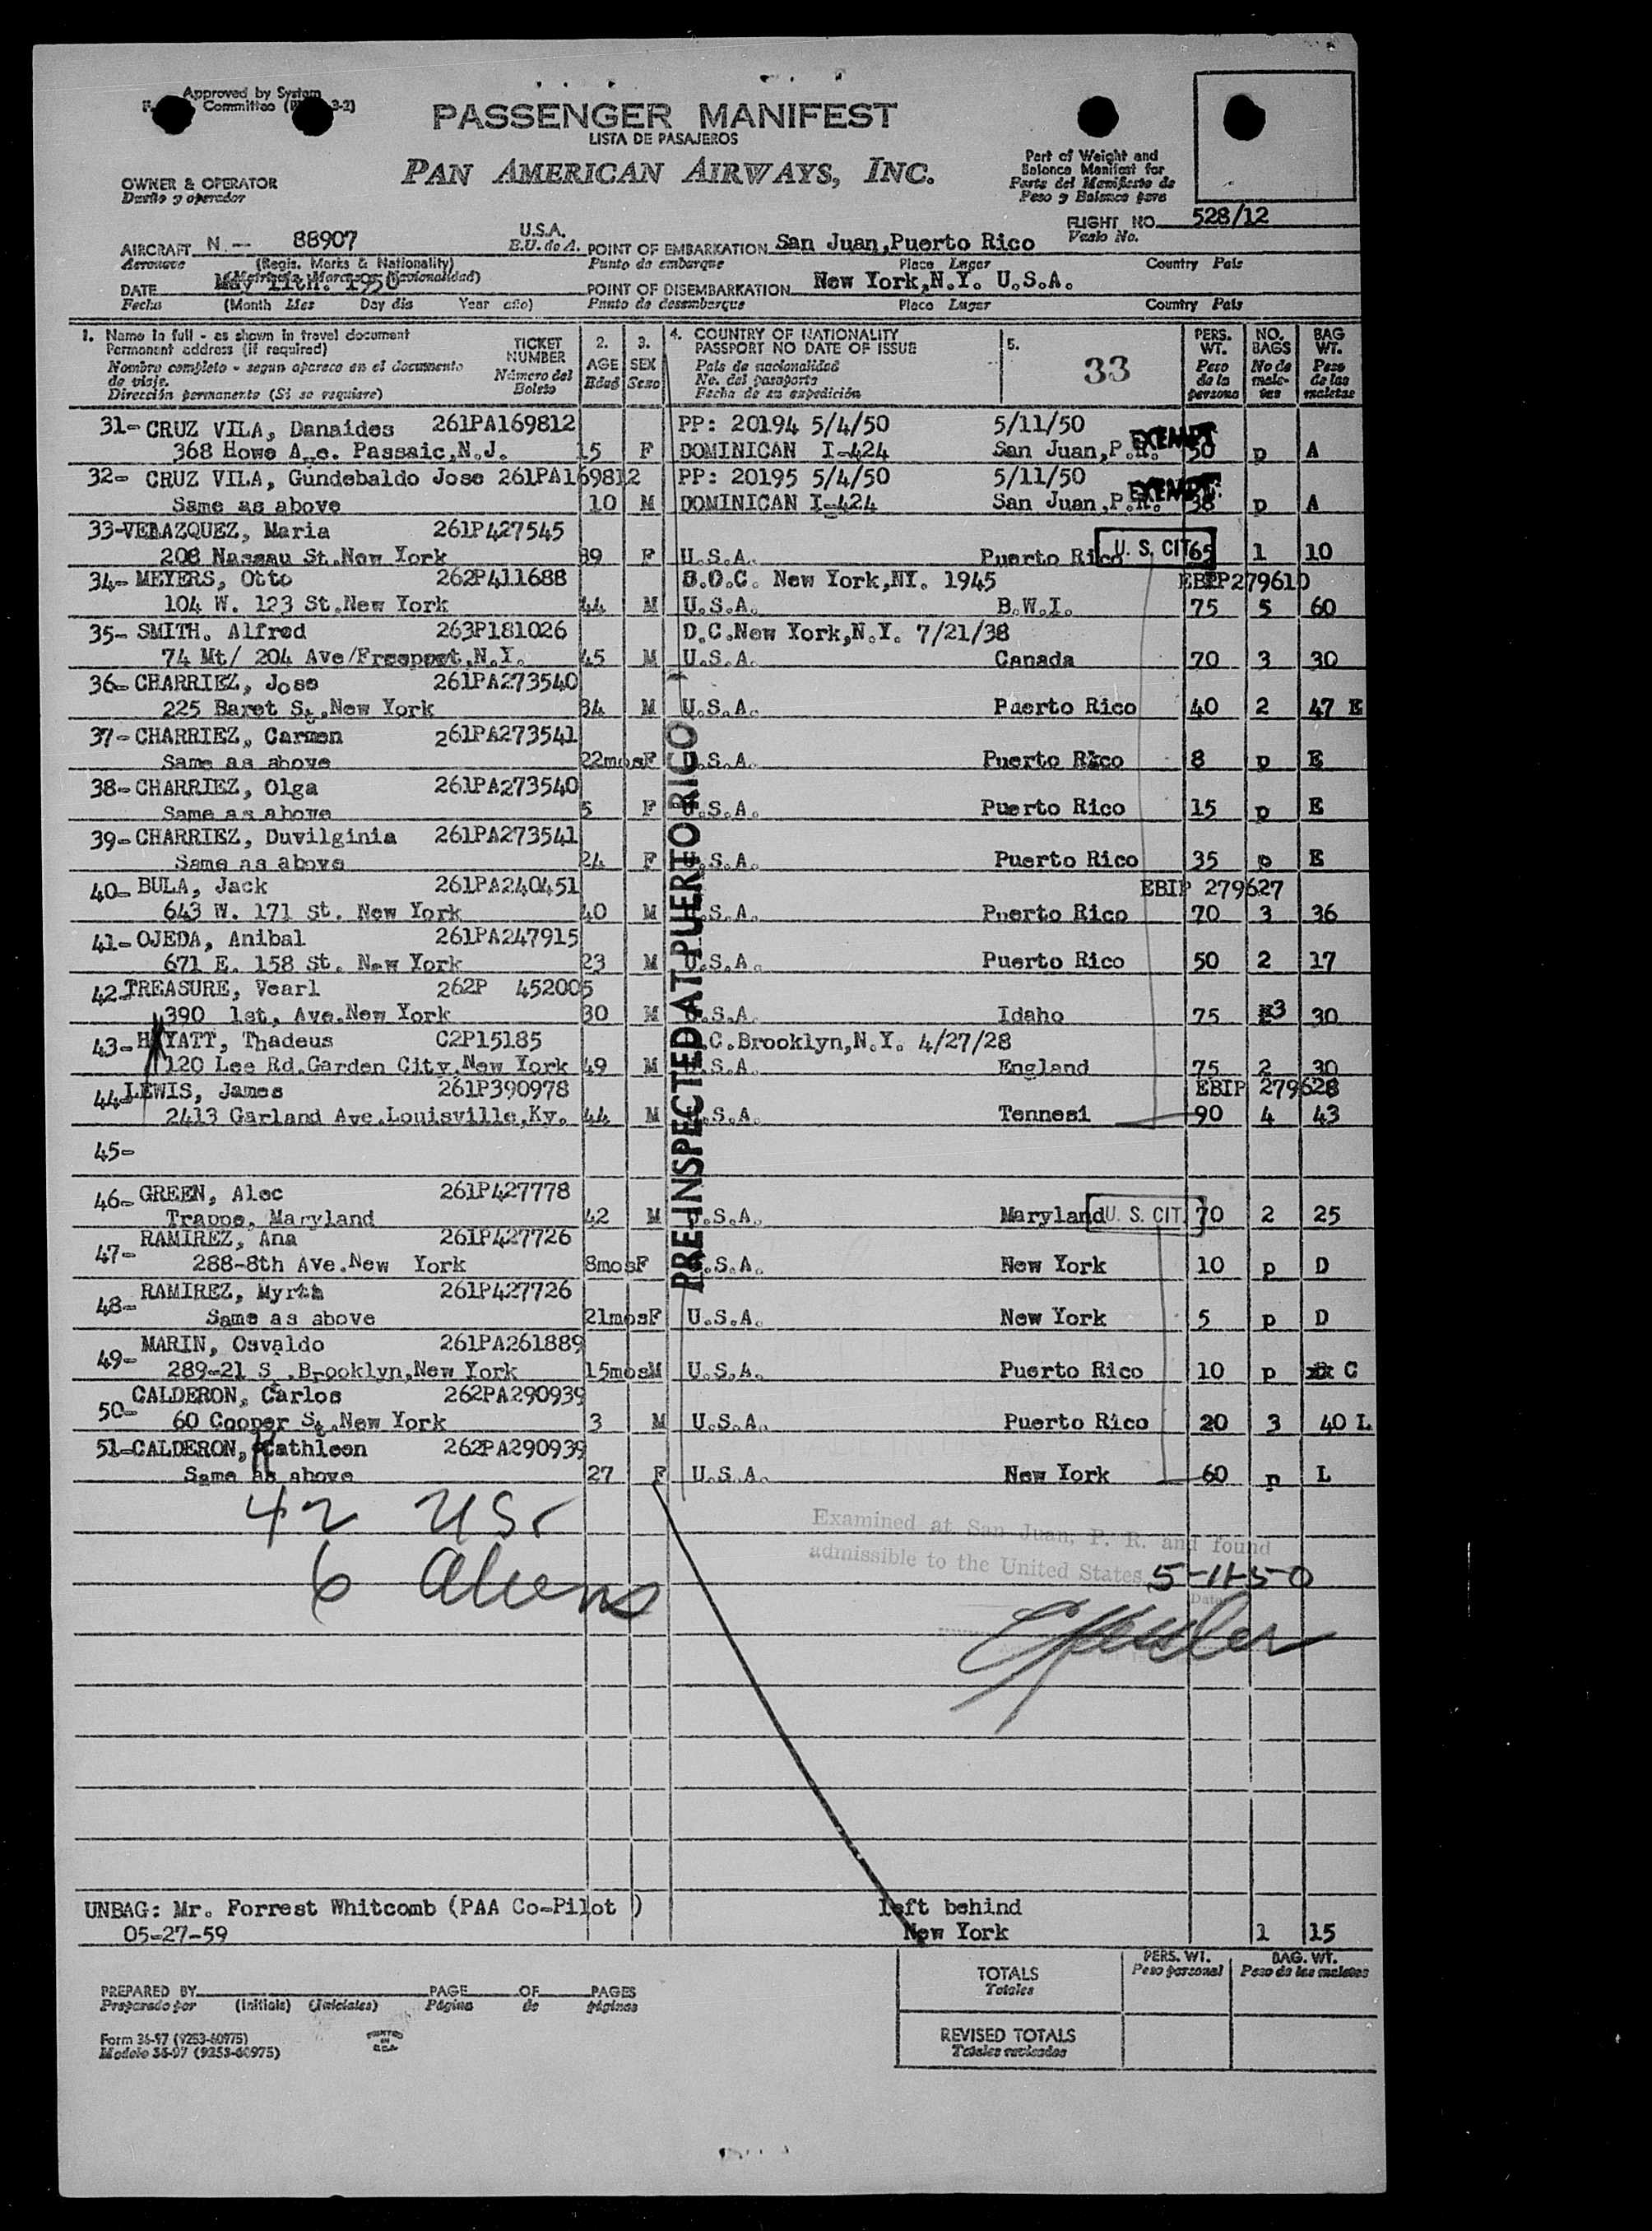 Approved by System
Committee
3-2)
PASSENGER MANIFEST
LISTA DE PASAJEROS
PAN AMERICAN AIRWAYS, INC.
Part of Weight and
Balance Manifest for
Parte del Manifiesto de
Peso y Balance para
OWNER & OPERATOR
Dueño y operador
FLIGHT NO. 528/12
Vuelo No.
AIRCRAFT N - 88907 U.S.A. POINT OF EMBARKATION San Juan,Puerto Rico
Aeronave (Regis. Marks & Nationality) E.U. de A. Punto de embarque Place Lugar Country País
(Matricula Marcas y Nacionalidad)
DATE May 11th. 1950 POINT OF DISEMBARKATION New York,N.Y. U.S.A.
Fecha (Month Mes Day día Year año) Punto de desembarque Place Lugar Country País
1. Name in full - as shown in travel document
Permanent address (if required)
Nombre completo - segun aparece en el documento
de viaje.
Dirección permanente (Si se requiere)
TICKET
NUMBER
Número del
Boleto
2.
AGE
Edad
3.
SEX
Sexo
4. COUNTRY OF NATIONALITY
PASSPORT NO DATE OF ISSUE
País de nacionalidad
No. del pasaporte
Fecha de su expedición
5.
33
PERS.
WT.
Peso
de la
persona
NO.
BAGS
No de
male-
tas
BAG
WT.
Peso
de las
maletas
31- CRUZ VILA, Danaides 261PA169812 PP: 20194 5/4/50 5/11/50
368 Howe Ave. Passaic,N.J. 15 F DOMINICAN I-424 San Juan,P.R. EXEMPT 50 p A
32- CRUZ VILA, Gundebaldo Jose 261PA169812 PP: 20195 5/4/50 5/11/50
Same as above 10 M DOMINICAN I-424 San Juan,P.R. EXEMPT 38 p A
33-VELAZQUEZ, Maria 261P427545
208 Nassau St.New York 39 F U.S.A. Puerto Rico U. S. CIT 65 1 10
34- MEYERS, Otto 262P411688 D.O.C. New York,NY. 1945 EBIP279610
104 W. 123 St.New York 44 M U.S.A. B.W.I. 75 5 60
35- SMITH. Alfred 263P181026 D.C.New York,N.Y. 7/21/38
74 Mt/ 204 Ave/Freeport,N.Y. 45 M U.S.A. Canada 70 3 30
36- CHARRIEZ, Jose 261PA273540
225 Baret St.,New York 34 M U.S.A. Puerto Rico 40 2 47 E
37- CHARRIEZ, Carmen 261PA273541
Same as above 22mos F U.S.A. Puerto Rico 8 p E
38- CHARRIEZ, Olga 261PA273540
Same as above 5 F U.S.A. Puerto Rico 15 p E
39- CHARRIEZ, Duvilginia 261PA273541
Same as above 24 F U.S.A. Puerto Rico 35 p E
40- BULA, Jack 261PA240451 EBIP 279627
643 W. 171 St. New York 40 M U.S.A. Puerto Rico 70 3 36
41- OJEDA, Anibal 261PA247915
671 E. 158 St. New York 23 M U.S.A. Puerto Rico 50 2 17
42-TREASURE, Vearl 262P 452005
390 1st, Ave.New York 30 M U.S.A. Idaho 75 3 30
43- HYATT, Thadeus C2P15185 .C.Brooklyn,N.Y. 4/27/28
120 Lee Rd.Garden City,New York 49 M U.S.A. England 75 2 30
44-LEWIS, James 261P390978 EBIP 279628
2413 Garland Ave.Louisville,Ky. 44 M U.S.A. Tennesi 90 4 43
45-
46- GREEN, Alec 261P427778
Trappe, Maryland 42 M U.S.A. Maryland U. S. CIT. 70 2 25
47- RAMIREZ, Ana 261P427726
288-8th Ave.New York 8mos F U.S.A. New York 10 p D
48- RAMIREZ, Myrth 261P427726
Same as above 21mos F U.S.A. New York 5 p D
49- MARIN, Osvaldo 261PA261889
289-21 St.Brooklyn,New York 15mos M U.S.A. Puerto Rico 10 p C
50- CALDERON, Carlos 262PA290939
60 Cooper St.,New York 3 M U.S.A. Puerto Rico 20 3 40 L
51-CALDERON, Kathleen 262PA290939
Same as above 27 F U.S.A. New York 60 p L
PRE-INSPECTED AT PUERTO RICO
42 USC
6 aliens
Examined at San Juan, P. R. and found
admissible to the United States
5-11-50
Date
UNBAG: Mr. Forrest Whitcomb (PAA Co-Pilot ) left behind
05-27-59 New York 1 15
PERS. WT.
Peso personal
BAG. WT.
Peso de las maletas
TOTALS
Totales
REVISED TOTALS
Totales revisados
PREPARED BY PAGE OF PAGES
Preparado por (Initials) (Iniciales) Página de páginas
Form 36-97 (9253-60975)
Modelo 36-97 (9253-60975)
PRINTED
IN
U.S.A.